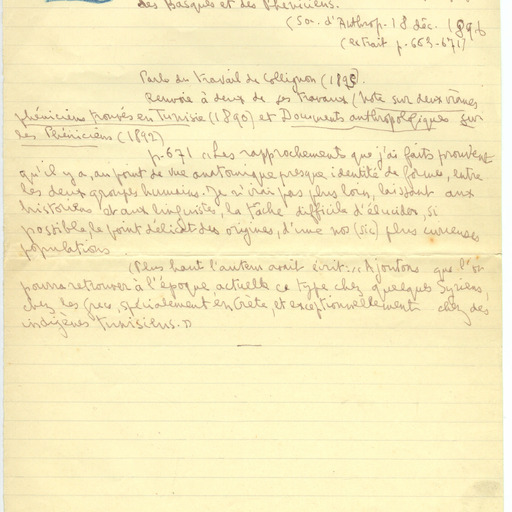 des Basques et des Phéniciens.
(Soc. d'Anthrop. 18 déc. 1896
(extrait p. 663-671)
Parle du travail de Collignon (1895).
Renvoie à deux de ses travaux (Note sur deux crânes
phéniciens trouvés en Tunisie (1890) et Documents anthropologiques sur
des Phéniciens (1892)
p. 671 "Les rapprochements que j'ai faits prouvent
qu'il y a, au point de vue anatomique presque identité de formes, entre
les deux groupes humains. Je n'irai pas plus loin, laissant aux
historiens et aux linguistes, la tâche difficile d'élucider, si
possible, le point délicat des origines, d'une nos (sic) plus curieuses
populations
(Plus haut l'auteur avait écrit : "Ajoutons que l'on
pourra retrouver à l'époque actuelle ce type chez quelques Syriens,
chez les Grecs, spécialement en Crète, et exceptionnellement chez des
indigènes tunisiens."